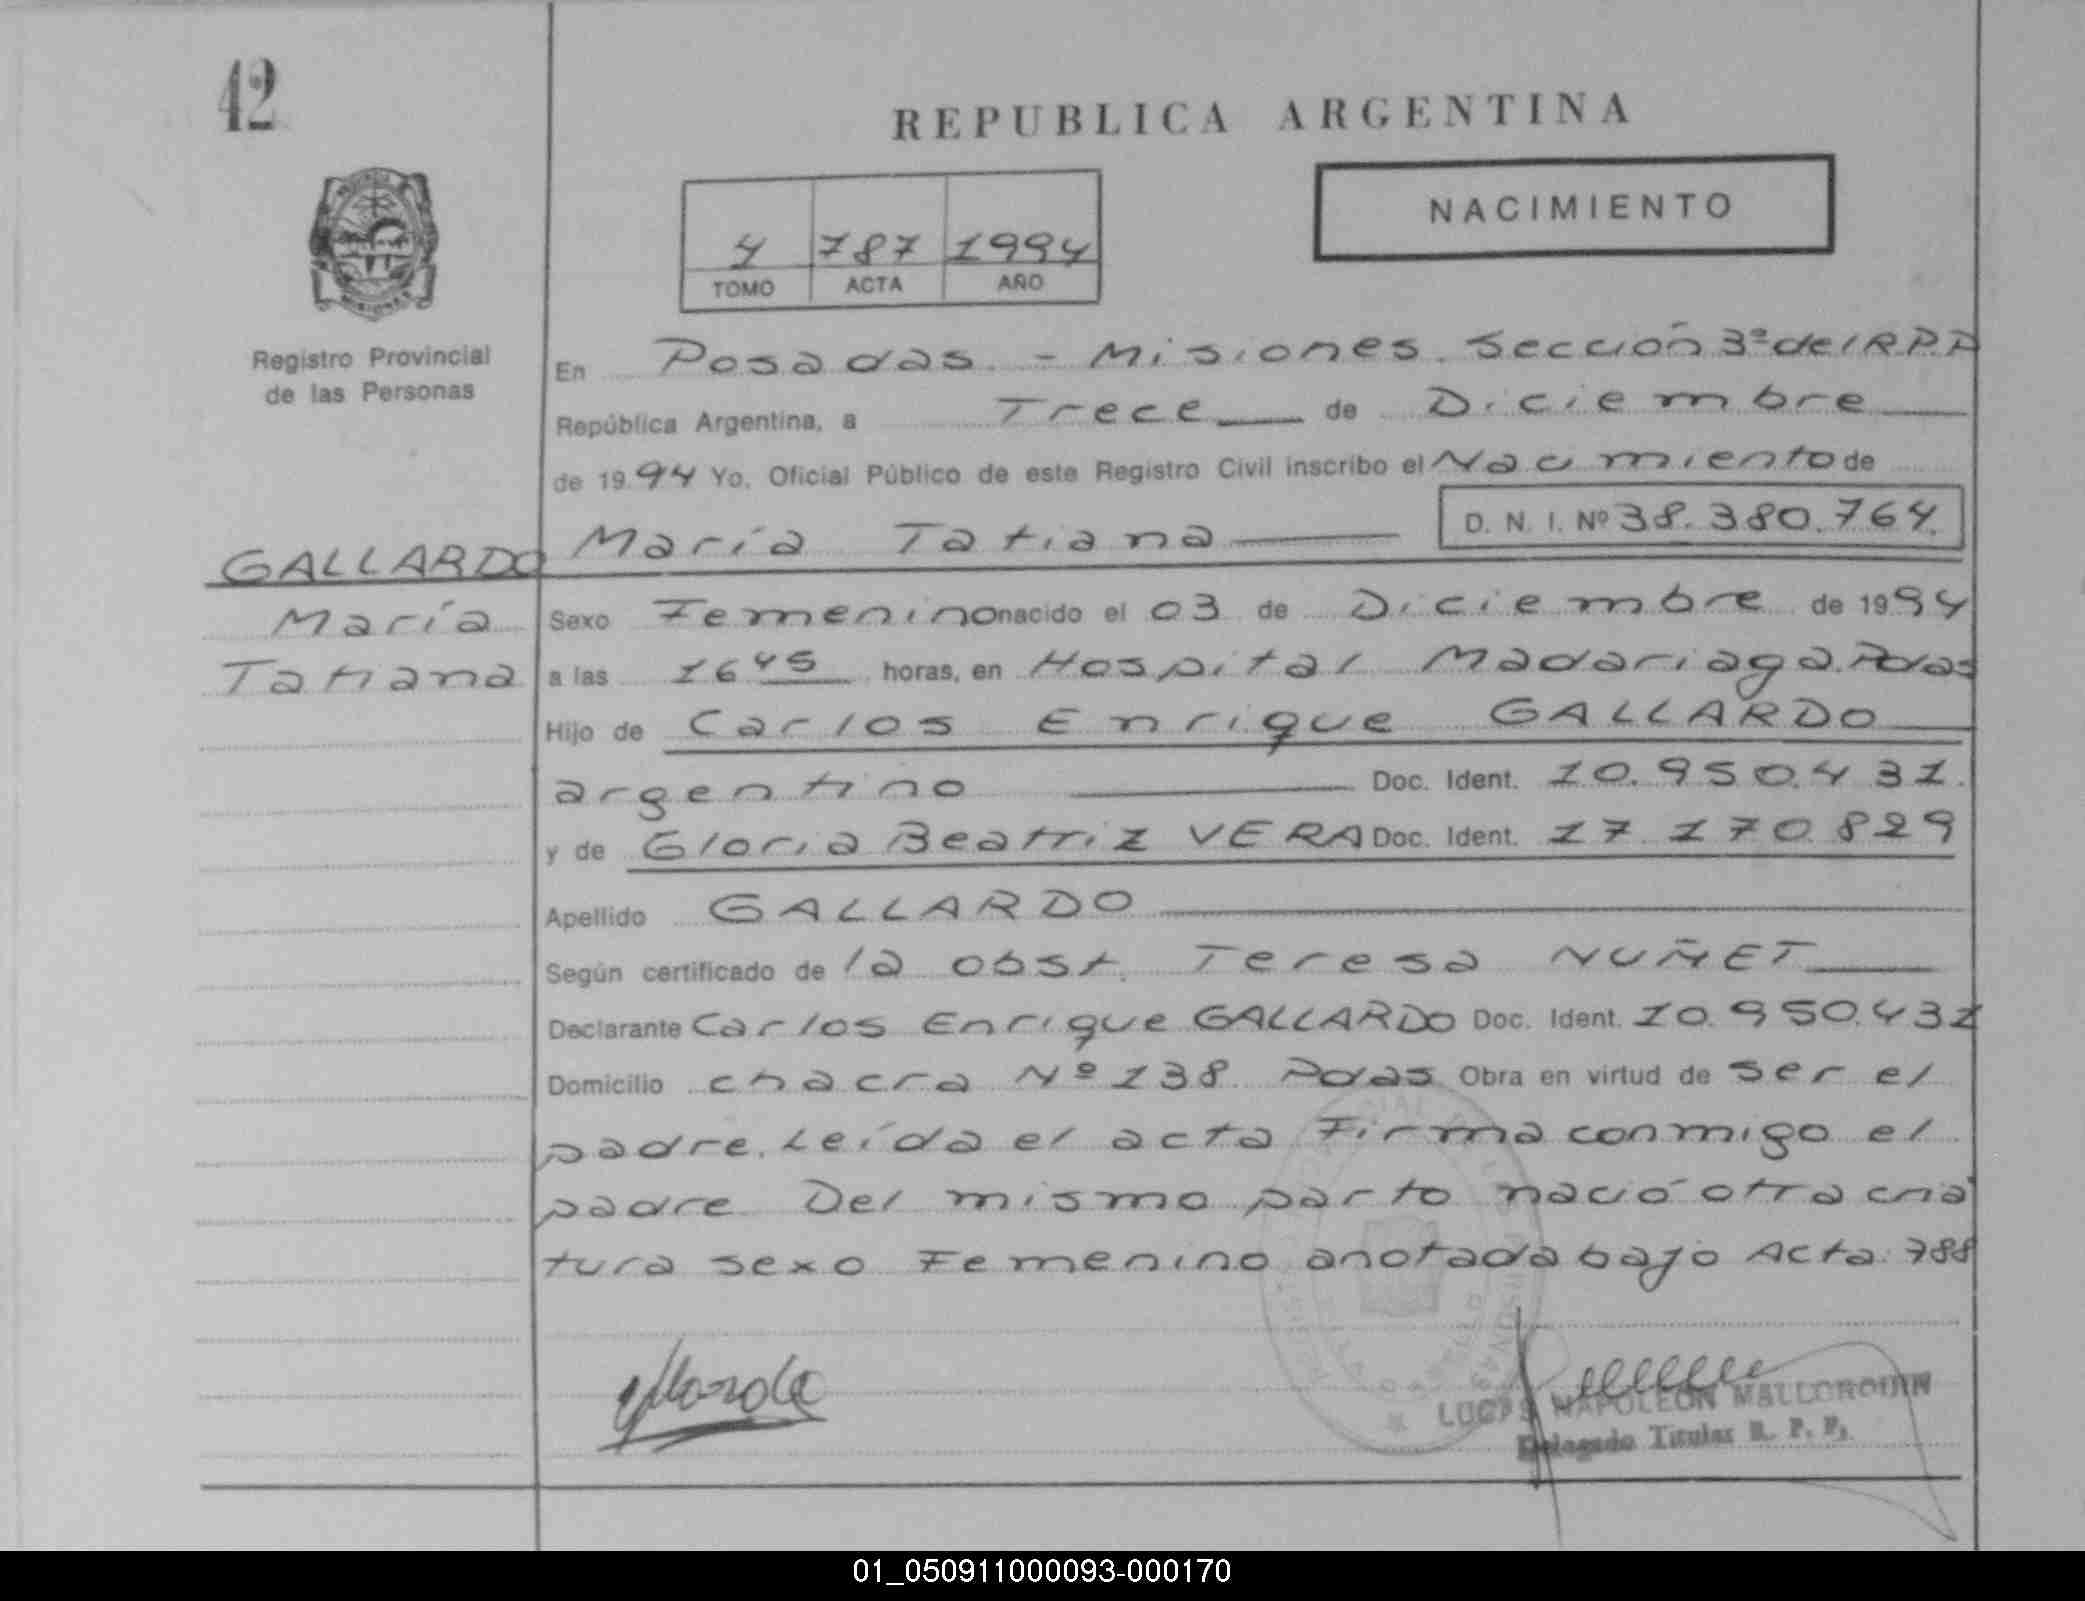 42
REPUBLICA ARGENTINA
NACIMIENTO
4 787 1994
TOMO ACTA AÑO
MISIONES
Registro Provincial
de las Personas
En Posadas - Misiones. Sección 3ª del R.P.P
República Argentina, a Trece de Diciembre
de 1994 Yo, Oficial Público de este Registro Civil inscribo el Nacimiento de
D. N. I. Nº 38.380.764.
María Tatiana
GALLARDO
María
Tatiana
Sexo Femenino nacido el 03 de Diciembre de 1994
a las 16 45 horas, en Hospital Madariaga. Pdas
Hijo de Carlos Enrique GALLARDO
argentino Doc. Ident. 10.950.431.
y de Gloria Beatriz VERA Doc. Ident. 17.170.829
Apellido GALLARDO
Según certificado de la obst. Teresa NUÑET
Declarante Carlos Enrique GALLARDO Doc. Ident. 10.950.431
Domicilio chacra Nº 138 Pdas Obra en virtud de ser el
padre. Leída el acta Firma conmigo el
padre. Del mismo parto nació otra cria
tura sexo Femenino anotada bajo Acta 788
NAPOLEON MALLORQUIN
Delegado Titular R. P. P.
01_050911000093-000170